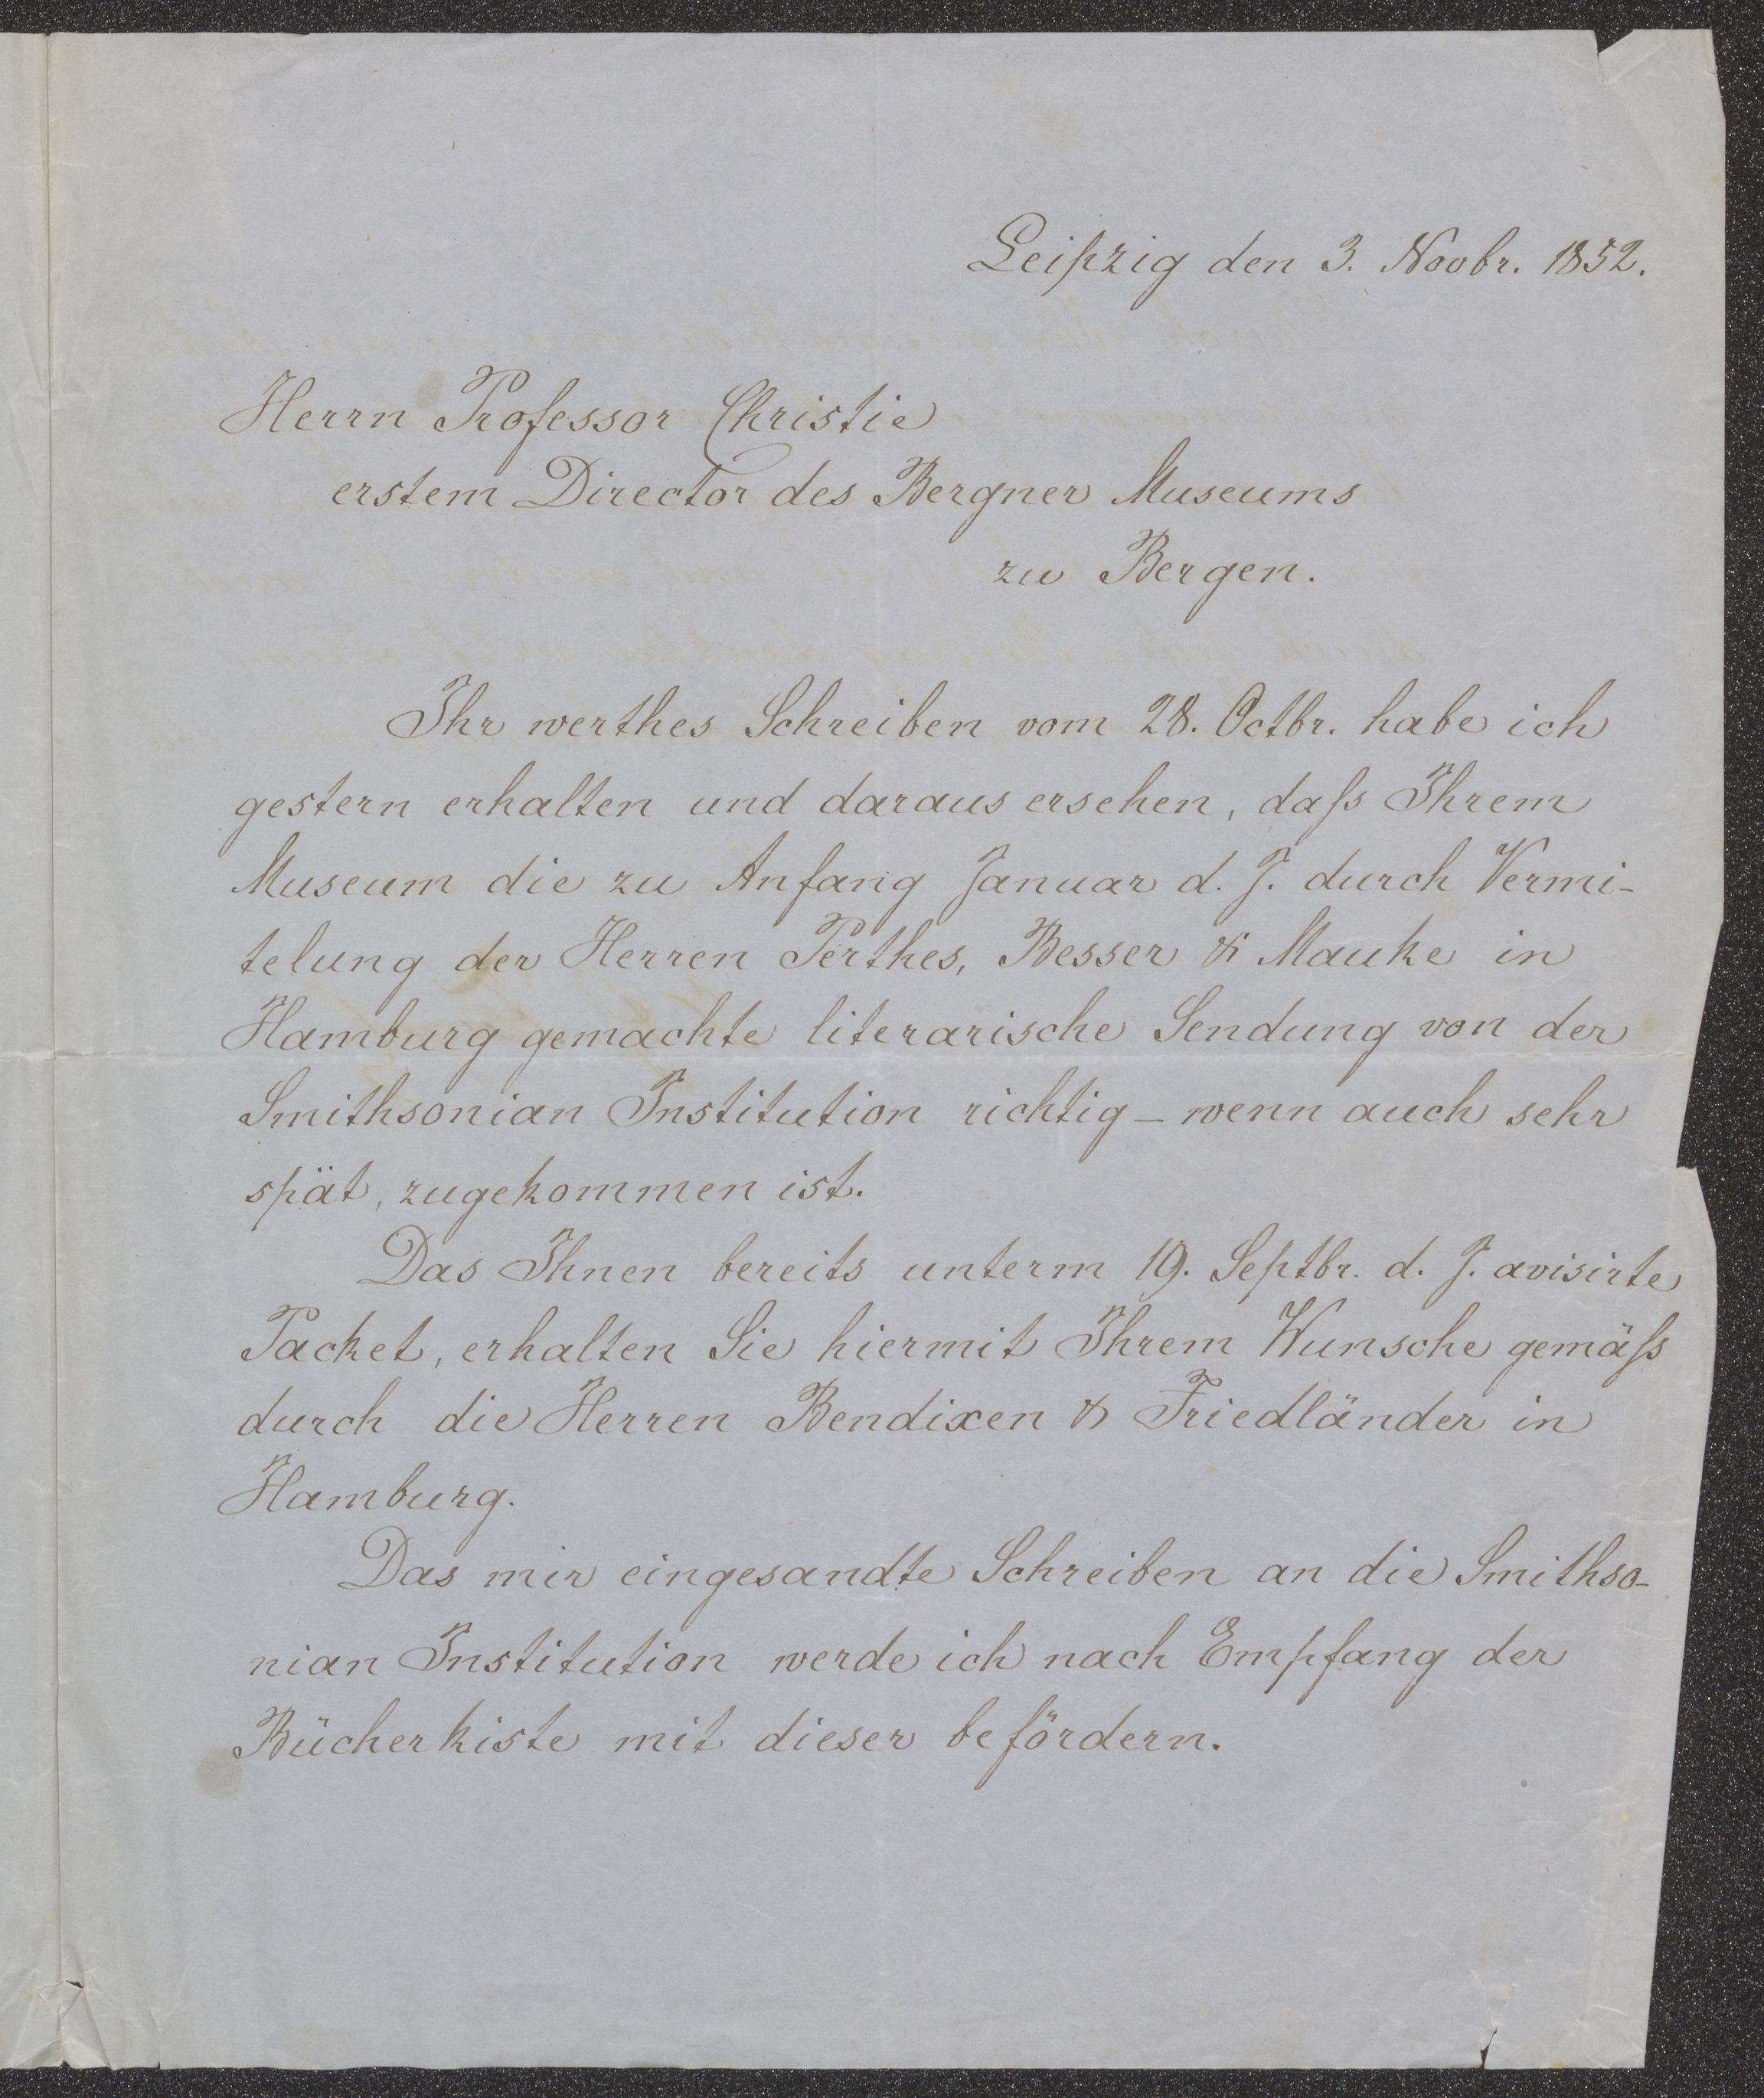 Leipzig den 3. Novbr. 1852.
Herrn Professor Christie
erstem Director des Bergner Museums
zu Bergen.
Ihr werthes Schreiben vom 28. Octbr. habe ich
gestern erhalten und daraus ersehen, daſs Ihrem
Museum die zu Anfang Januar d. J. durch Vermi-
telung der Herren Perthes, Besser & Mauke in
Hamburg gemachte literarische Sendung von der
Smithsonian Institution richtig – wenn auch sehr
spät, zugekommen ist.
Das Ihnen bereits unterm 19. Septbr. d. J. avisirte
Packet, erhalten Sie hiermit Ihrem Wunsche gemäſs
durch die Herren Bendixen & Friedländer in
Hamburg.
Das mir eingesandte Schreiben an die Smithso-
nian Institution werde ich nach Empfang der
Bücherkiste mit dieser befördern.